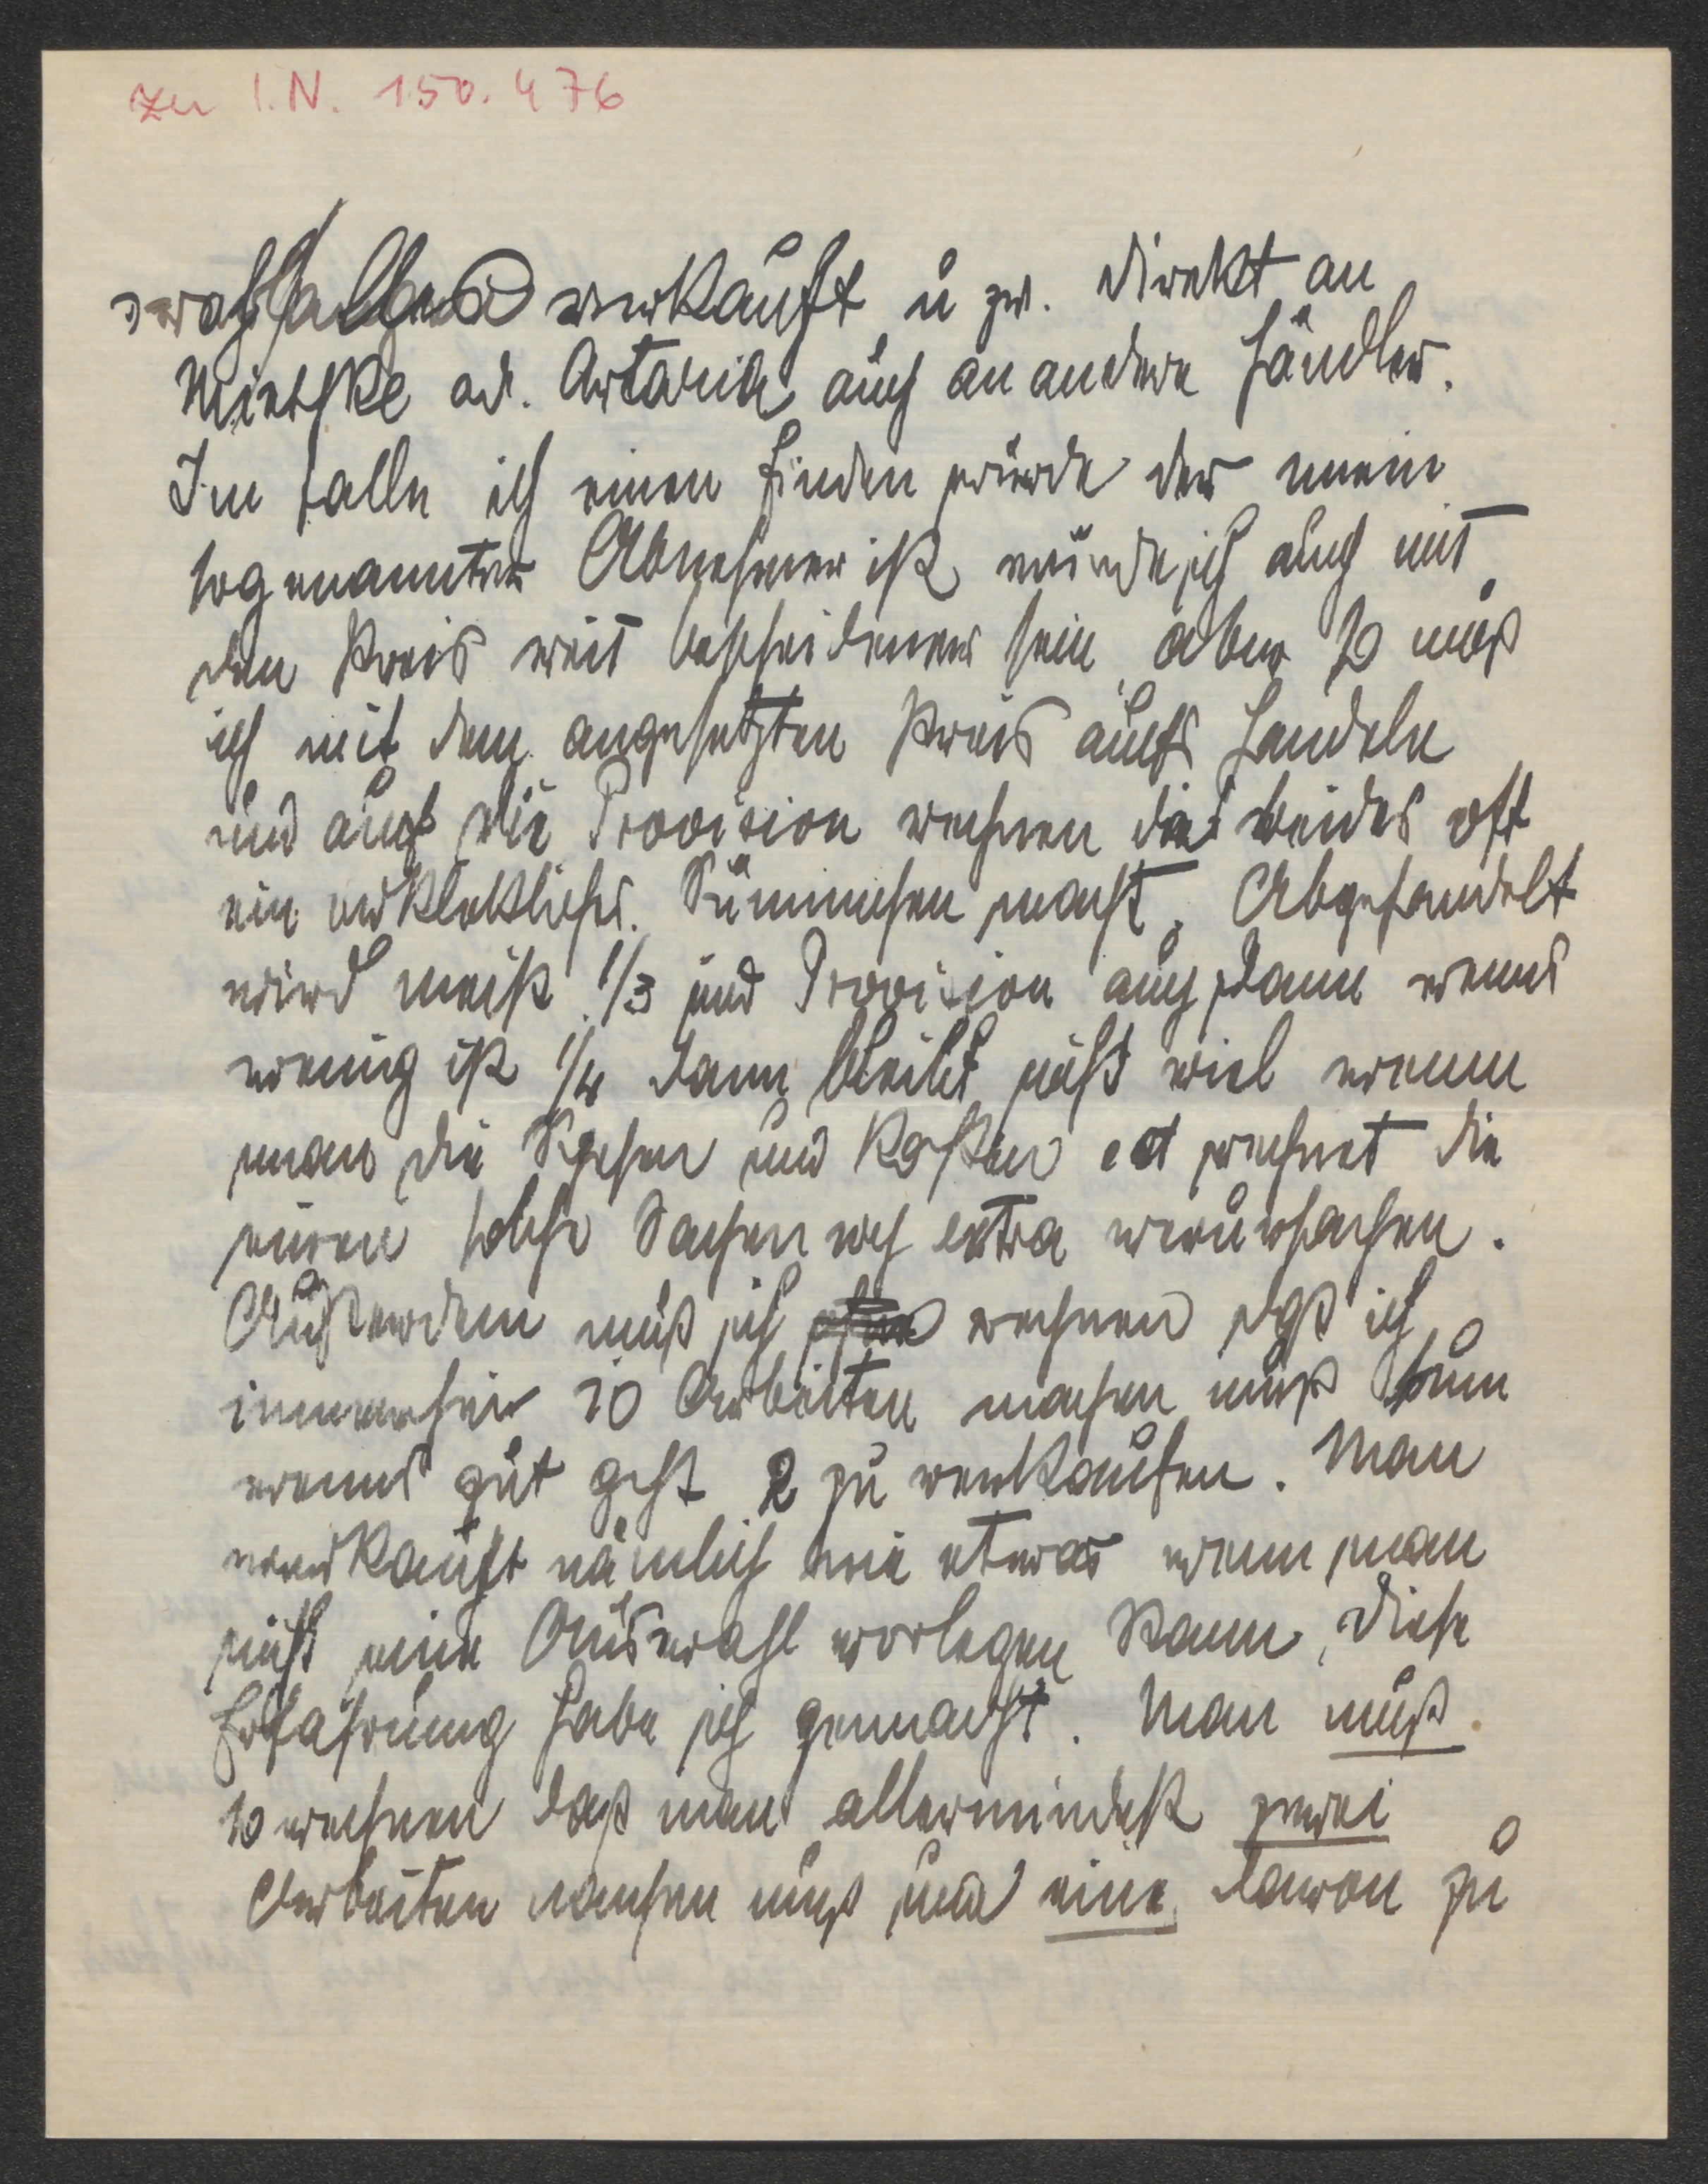 zu I.N. 150.476
verkauft u zw. direkt an
Miethke od. Artaria auch an andere Händler.
Im falle ich einen finden würde der mein
sogenannter Abnehmer ist würde ich auch mit
den Preis weit bescheidener sein, aber so muß
ich mit dem angesetzten Preis aufs handeln
und auf die Provision rechnen die beides oft
ein erkleckliches Sümmchen macht. Abgehandelt
wird meist 1/3 und Provision auch dann wenns
wenig ist 1/4 dann bleibt nicht viel wenn
man die Spesen und Kosten ect rechnet die
einen solche Sachen noch extra verursachen.
Außerdem muß ich rechnen daß ich
immerhin 10 Arbeiten machen muß um
wenns gut geht 2 zu verkaufen. Man
verkauft nämlich nie etwas wenn man
nicht eine Auswahl vorlegen kann, diese
Erfahrung habe ich gemacht. Man muß
so rechnen daß man allermindest zwei
Arbeiten machen muß um eine davon zu